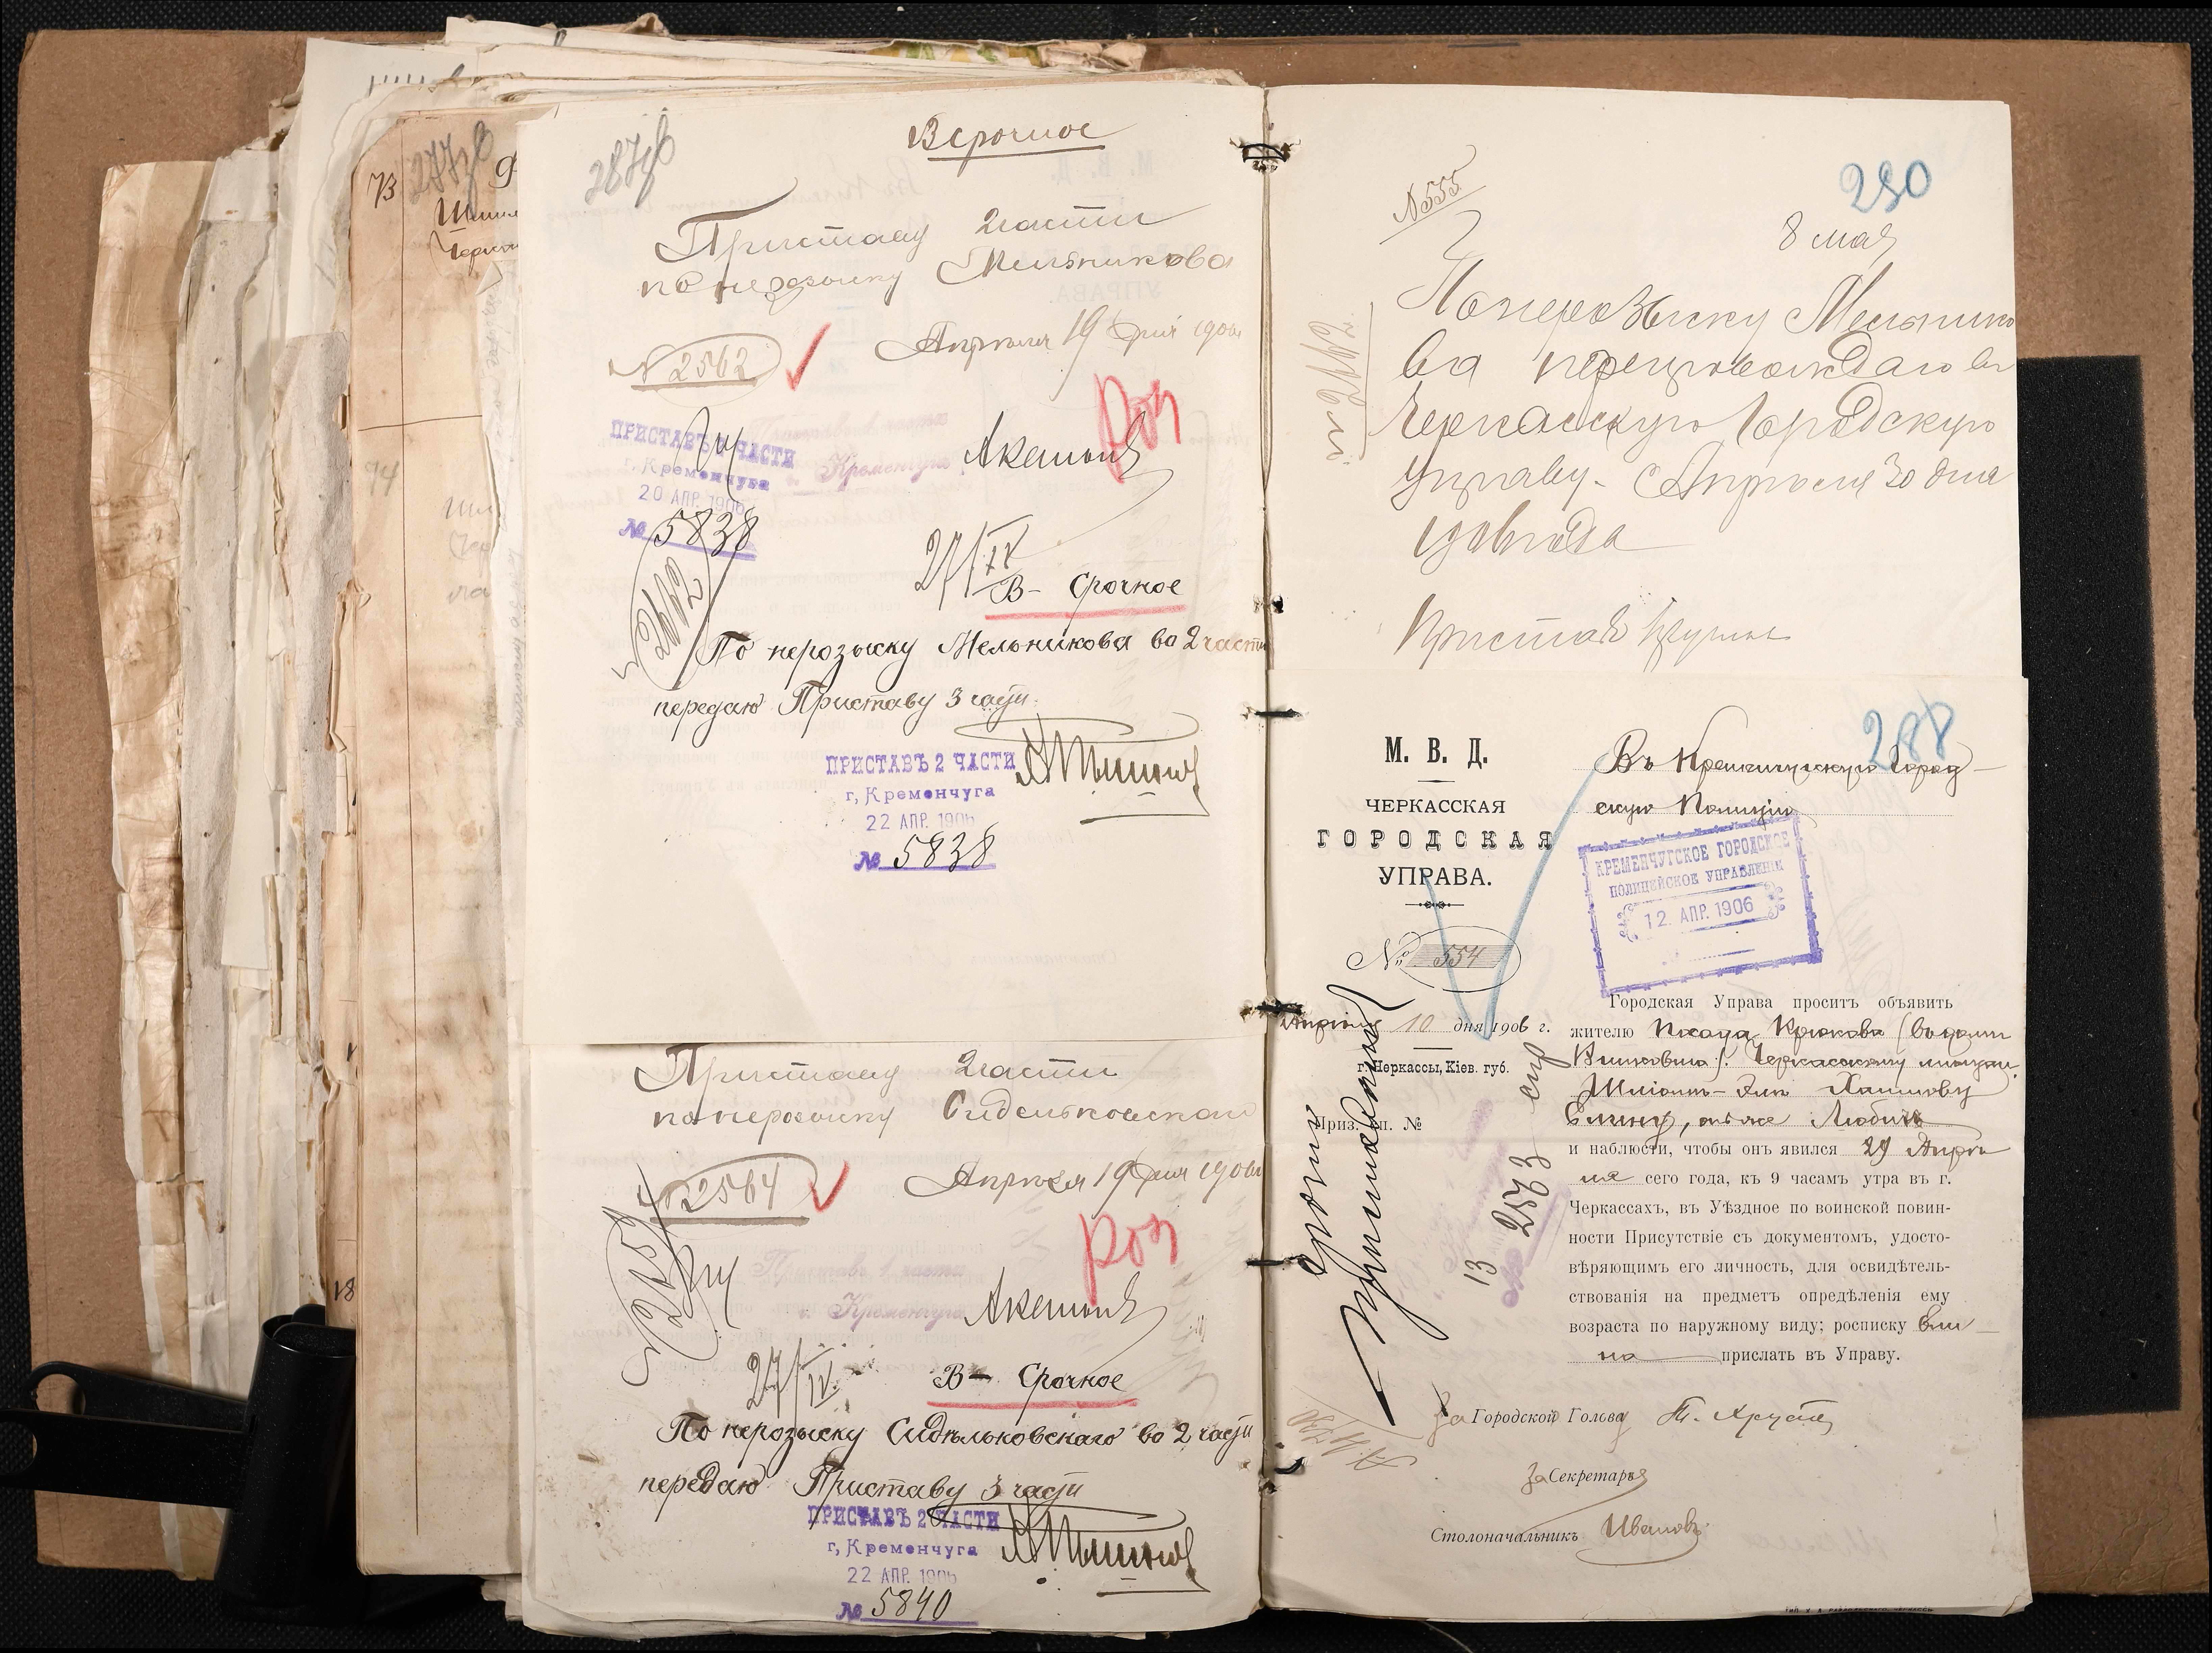 73
277
287
В срочное
Приставу 2 части
по нерозыску Мельникова
Апреля 19 дня 1906
№ 2562
роз
ПРИСТАВЪ 2 ЧАСТИ
г. Кременчуга
20 АПР. 1906
№ 5838
27/IV
В- Срочное
По нерозыску Мельникова во 2 части
передаю Приставу 3 части
ПРИСТАВЪ 2 ЧАСТИ
г. Кременчуга
22 АПР. 1906
№ 5838
Приставу 2 части
по нерозыску Сидельковскаго
Апреля 19 дня 1906
№ 2564
роз
Приставъ 1 части
г. Кременчуга
27/IV
В- Срочное
По нерозыску Сидѣльковскаго во 2 части
передаю Приставу 3 части
ПРИСТАВЪ 2 ЧАСТИ
г. Кременчуга
22 АПР. 1906
№ 5840
74
18
290
№ 555
8 мая
По нерозыску Мельнико
ва препровождаю въ
Черкасскую Городскую
Управу. Апреля 30 дня
1906 года
Приставъ
288
М. В. Д.
ЧЕРКАССКАЯ
ГОРОДСКАЯ
УПРАВА.
№ 554
Апреля 10 дня 1906 г.
г. Черкассы, Кіев. губ.
Приз. сп. №
Въ Кременчугскую Город-
скую Полицію
КРЕМЕНЧУГСКОЕ ГОРОДСКОЕ
ПОЛИЦЕЙСКОЕ УПРАВЛЕНІЕ
12. АПР. 1906
Городская Управа проситъ объявить
жителю Посада Крюкова (въ домѣ
Черкасскому мѣщан.
Хаимову
онъ же Любичъ
и наблюсти, чтобы онъ явился 29 Апрѣ
ля сего года, къ 9 часамъ утра въ г.
Черкассахъ, въ Уѣздное по воинской повин-
ности Присутствіе съ документомъ, удосто-
вѣряющимъ его личность, для освидѣтель-
ствованія на предметъ опредѣленія ему
возраста по наружному виду; росписку
прислать въ Управу.
За Городской Голова
За Секретаря
Столоначальникъ Ивановъ
срочно
13
2563